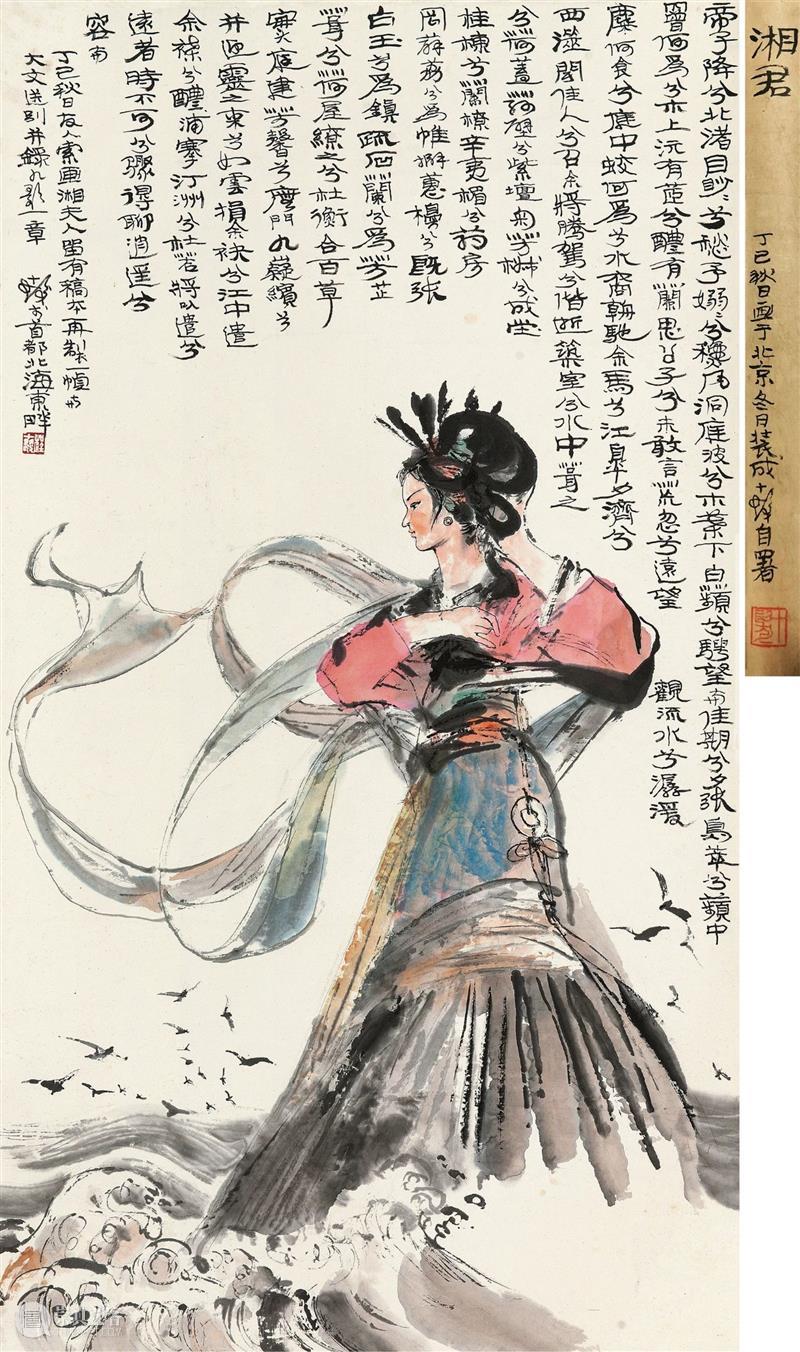 湘君
丁巳秋日画于北京冬日装成十髮自署
帝子降兮北渚目眇〻兮愁予嫋〻兮穐風洞庭波兮木葉下白薠兮騁望与佳期兮夕張鳥萃兮蘋中
罾何為兮木上沅有茝兮醴有蘭思公子兮未敢言荒忽兮遠望
觀流水兮潺湲
麋何食兮庭中蛟何為兮水裔朝馳余馬兮江皋夕濟兮
西澨聞佳人兮召余將騰駕兮偕逝築室兮水中葺之
兮荷蓋蓀壁兮紫壇匊芳椒兮成堂
桂棟兮蘭橑辛夷楣兮葯房
罔薜荔兮為帷擗蕙櫋兮既張
白玉兮為鎮疏石蘭兮為芳芷
葺兮荷屋繚之兮杜衡合百草
實庭建芳馨兮廡門九嶷繽兮
并迎靈之來兮如雲捐余袂兮江中遺
余褋兮醴浦搴汀洲兮杜若將以遺兮
遠者時不可兮驟得聊逍遥兮
容与
丁巳秋日友人索画湘夫人畱有稿本再製一幀与
大文送别并錄九歌一章
髮于首都北海東畔